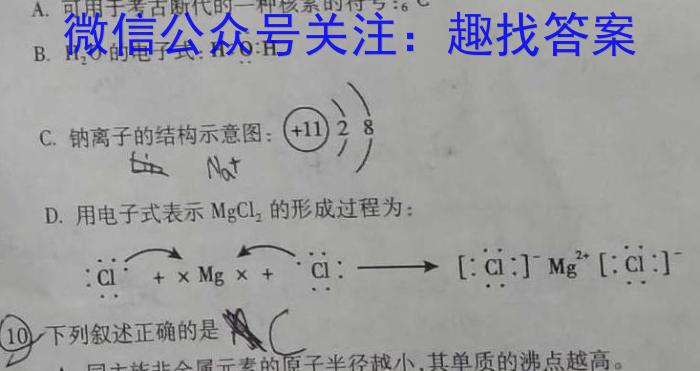 A. 可用于考古断代的一种核素的符号:₆ C
微信公众号关注：趣找答案
B. H₂O 的电子式: H:O:H
C. 钠离子的结构示意图: +11 2 8
Na+
D. 用电子式表示 MgCl₂ 的形成过程为:
:Cl· + × Mg × + ·Cl: ⟶ [:Cl:]⁻ Mg²⁺ [:Cl:]⁻
10 下列叙述正确的是 C
A. 同主族非金属元素的原子半径越小,其单质的沸点越高。